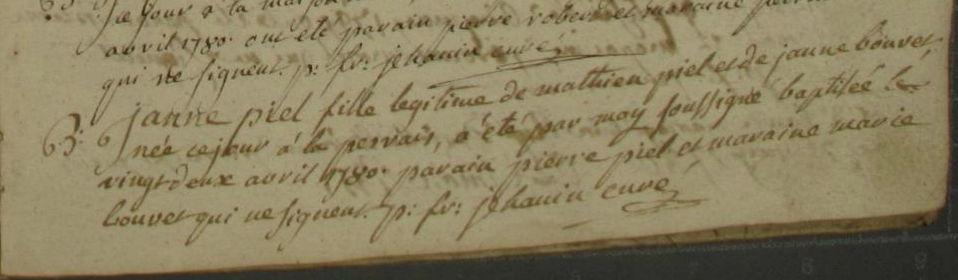 ce jour a la
avril 1780. ont été parain pierre robert et maraine
qui ne signent. p: fr: jehanin curé
B. janne piel fille legitime de mathieu piel et de janne bouvet,
née ce jour a la pervais, a été par moy soussigné baptisée le
vingt deux avril 1780. parain pierre piel et maraine marie
bouvet qui ne signent. p: fr: jehanin curé